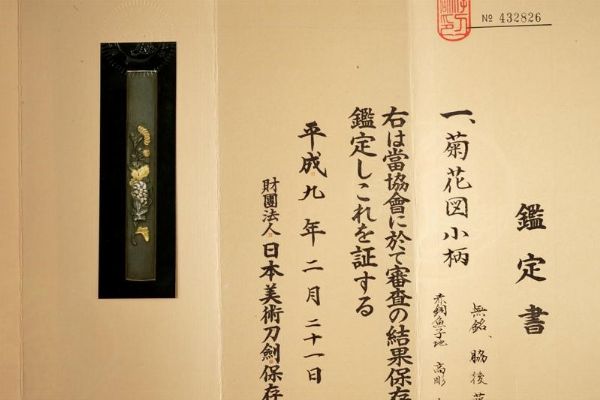 № 432826
鑑定書
無銘、脇後
赤銅魚子地 高彫
一、菊花図小柄
右は當協會に於て審査の結果保存
鑑定しこれを証する
平成九年二月二十一日
財團法人 日本美術刀劍保存